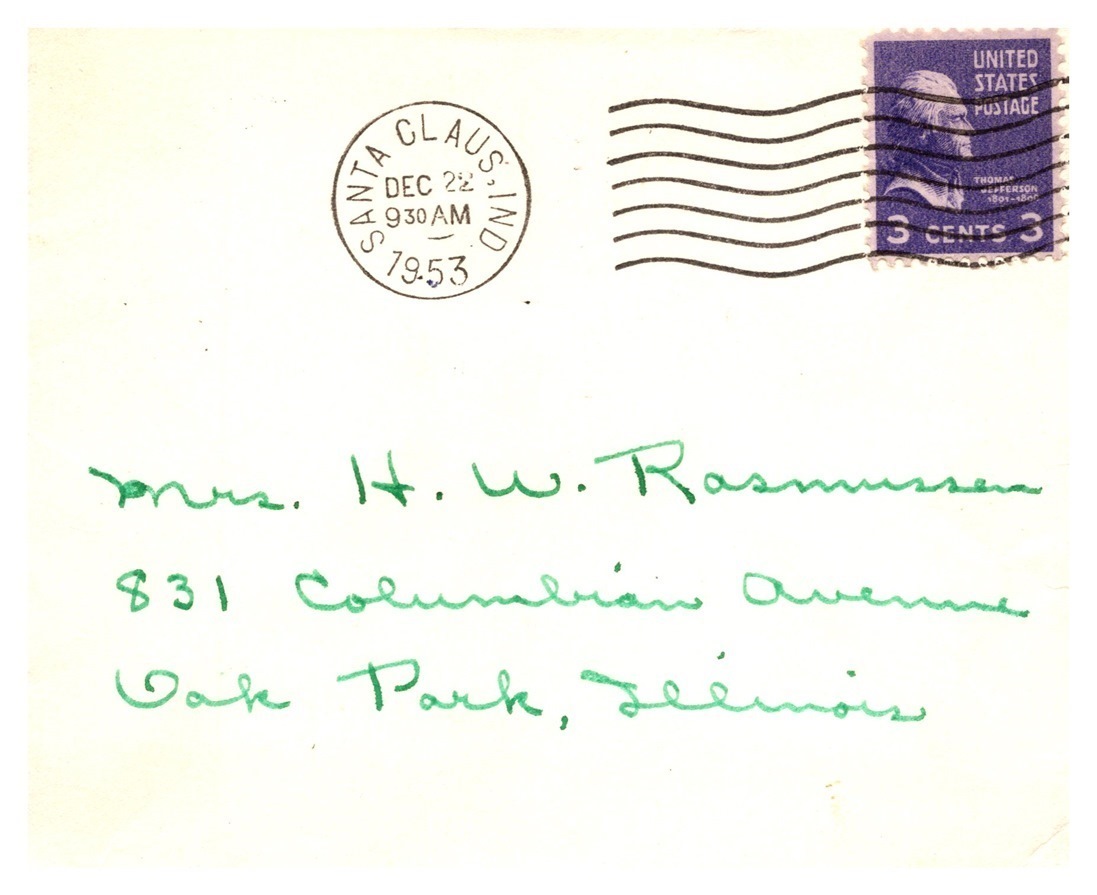 SANTA CLAUS, IND
DEC 22
9 30 AM
1953
UNITED
STATES
POSTAGE
THOMAS
JEFFERSON
1801-1809
3 CENTS 3
Mrs. H. W. Rasmussen
831 Columbian Avenue
Oak Park, Illinois